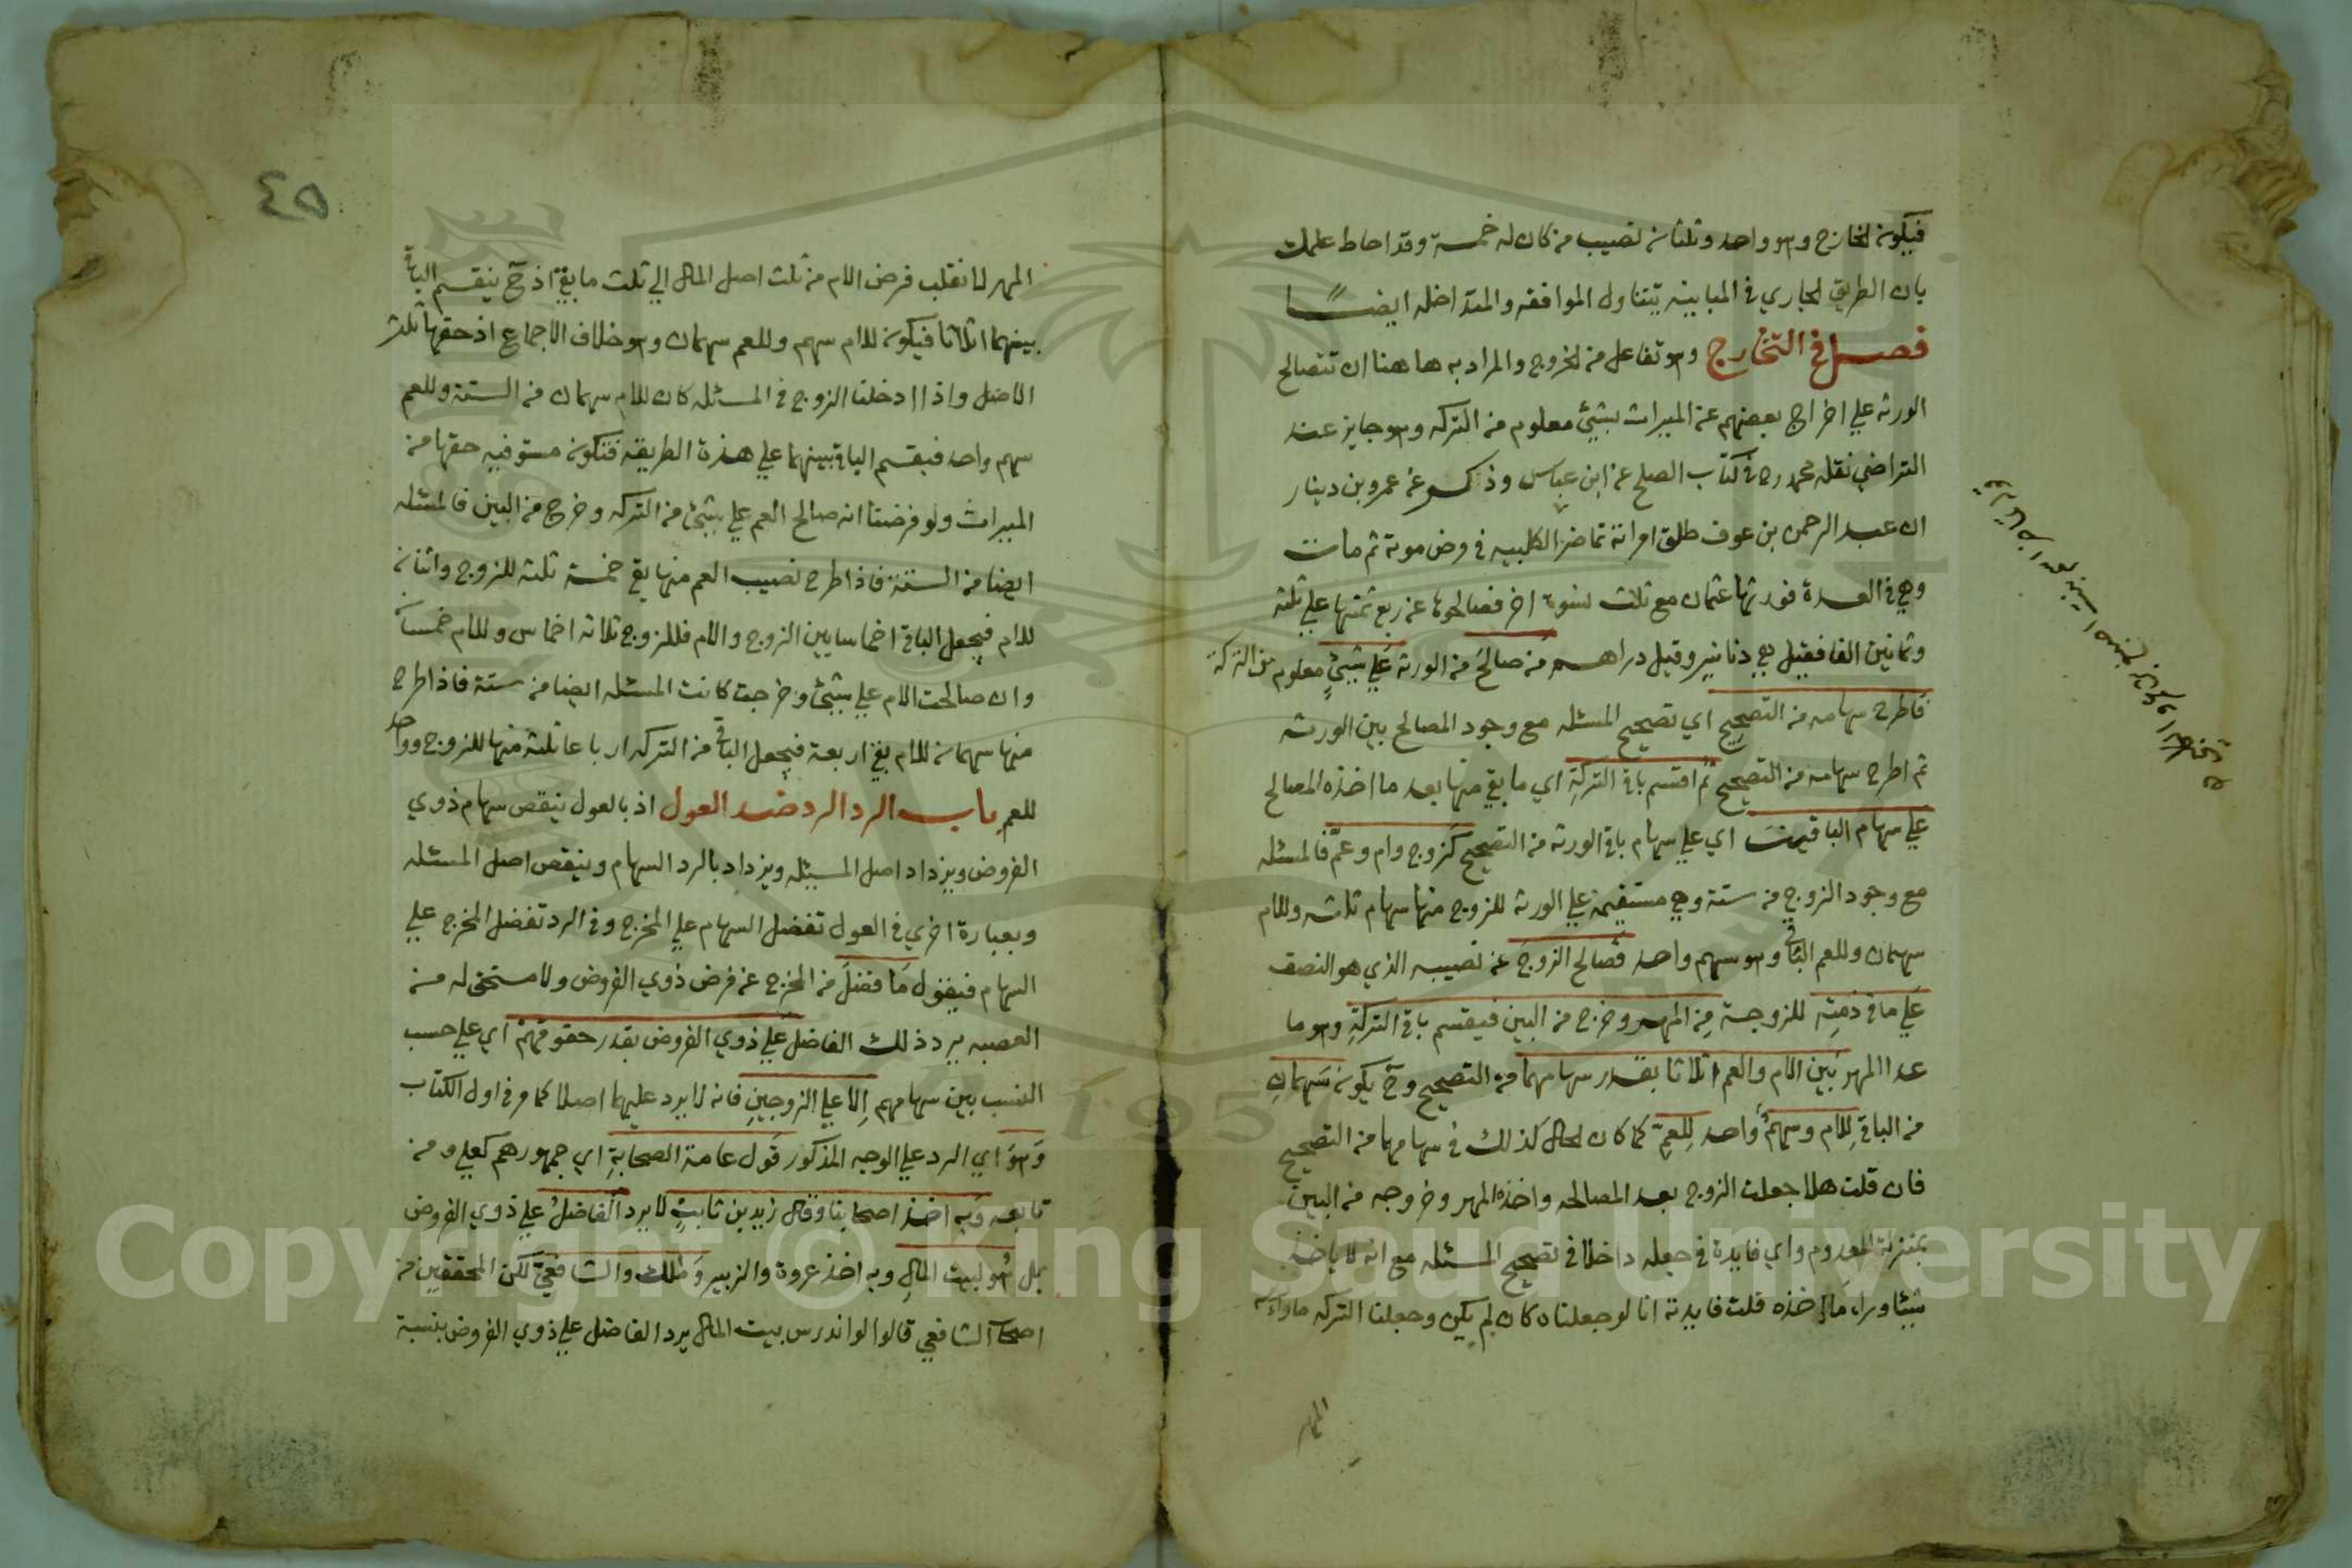 فيكون الخارج وهو واحد وثلثان نصيب من كان له خمسة وقد احاط علمك
بان الطريق الجاري في المباينه يتناول الموافقه والمتداخله ايضــا
فصــل في التخارج وهو تفاعل من الخروج والمراد به هاهنا ان تتصالح
الورثه علي اخراج بعضهم عن الميراث بشيئ معلوم من التركه وهو جايز عند
التراضي نقله محمد رح في كتاب الصلح عن ابن عباس وذكر عن عمرو بن دينار
ان عبد الرحمن بن عوف طلق امراته تماضر الكلبيه في مرض موته ثم مات
وهي في العدة فورثها عثمان مع ثلاث نسوة اخر فصالحوها عن ربع ثمنها علي ثلثة
وثمانين الفا فقيل هي دنانير وقيل دراهم من صالح من الورثه علي شيئ معلوم من التركة
فاطرح سهامه من التصحيح اي تصحيح المسئله مع وجود المصالح بين الورثه
ثم اطرح سهامه من التصحيح ثم اقسم باقي التركة اي ما بقي منها بعد ما اخذه المصالح
علي سهام الباقين اي علي سهام باقي الورثه من التصحيح كزوج وام وعم فالمسئله
مع وجود الزوج من ستة وهي مستقيمة علي الورثه للزوج منها سهام ثلثه وللام
سهمان وللعم الباقي وهو سهم واحد فصالح الزوج عن نصيبه الذي هو النصف
علي ما في ذمته للزوجة من المهر وخرج من البين فيقسم باقي التركة وهو ما
عدا المهر بين الام والعم اثلاثا بقدر سهامهما من التصحيح وح يكون سهمان
من الباقي للام وسهم واحد للعم كما كان الحال كذلك في سهامهما من التصحيح
فان قلت هلا جعلت الزوج بعد المصالحه واخذه المهر وخروجه من البين
بمنزلة المعدوم واي فايدة في جعله داخلا في تصحيح المسئله مع انه لا ياخذ
شيئا وراء ما اخذه قلت فايدته انا لو جعلناه كان لم يكن وجعلنا التركه ما وراء
المهر
٤٥
المهر لانقلب فرض الام من ثلث اصل المال الي ثلث ما بقي اذ ح ينقسم الباقي
بينهما اثلاثا فيكون للام سهم وللعم سهمان وهو خلاف الاجماع اذ حقها ثلث
الاصل واذا ادخلنا الزوج في المسئله كان للام سهمان من الستة وللعم
سهم واحد فيقسم الباقي بينهما علي هذة الطريقه فتكون مستوفيه حقها من
الميراث ولو فرضنا انه صالح العم علي شيئ من التركه وخرج من البين فالمسئله
ايضا من الستة فاذا طرح نصيب العم منها بقي خمسة ثلثه للزوج واثنان
للام فيجعل الباقي اخماسا بين الزوج والام فللزوج ثلاثه اخماس وللام خمسان
وان صالحت الام علي شيئ وخرجت كانت المسئله ايضا من ستة فاذا طرح
منها سهمان للام بقي اربعة فيجعل الباقي من التركه ارباعا ثلثة منها للزوج وواحد
للعم باب الرد الرد ضد العول اذ بالعول ينقص سهام ذوي
الفروض ويزداد اصل المسئله ويزداد بالرد السهام وينقص اصل المسئله
وبعبارة اخري في العول تفضل السهام علي المخرج وفي الرد تفضل المخرج علي
السهام فيقول ما فضل من المخرج عن فرض ذوي الفروض ولا مستحق له من
العصبه يرد ذلك الفاضل علي ذوي الفروض بقدر حقوقهم اي علي حسب
النسب بين سهامهم الا علي الزوجين فانه لا يرد عليهما اصلا كما مر في اول الكتاب
وهو اي الرد علي الوجه المذكور قول عامة الصحابة اي جمهورهم كعلي ومن
تابعه وبه اخذ اصحابنا وقال زيد بن ثابت لا يرد الفاضل علي ذوي الفروض
بل هو لبيت المال وبه اخذ عروة والزبير ومالك والشافعي لكن المحققين من
اصحاب الشافعي قالوا لو اندرس بيت المال يرد الفاضل علي ذوي الفروض بنسبة
Copyright © King Saud University
1957